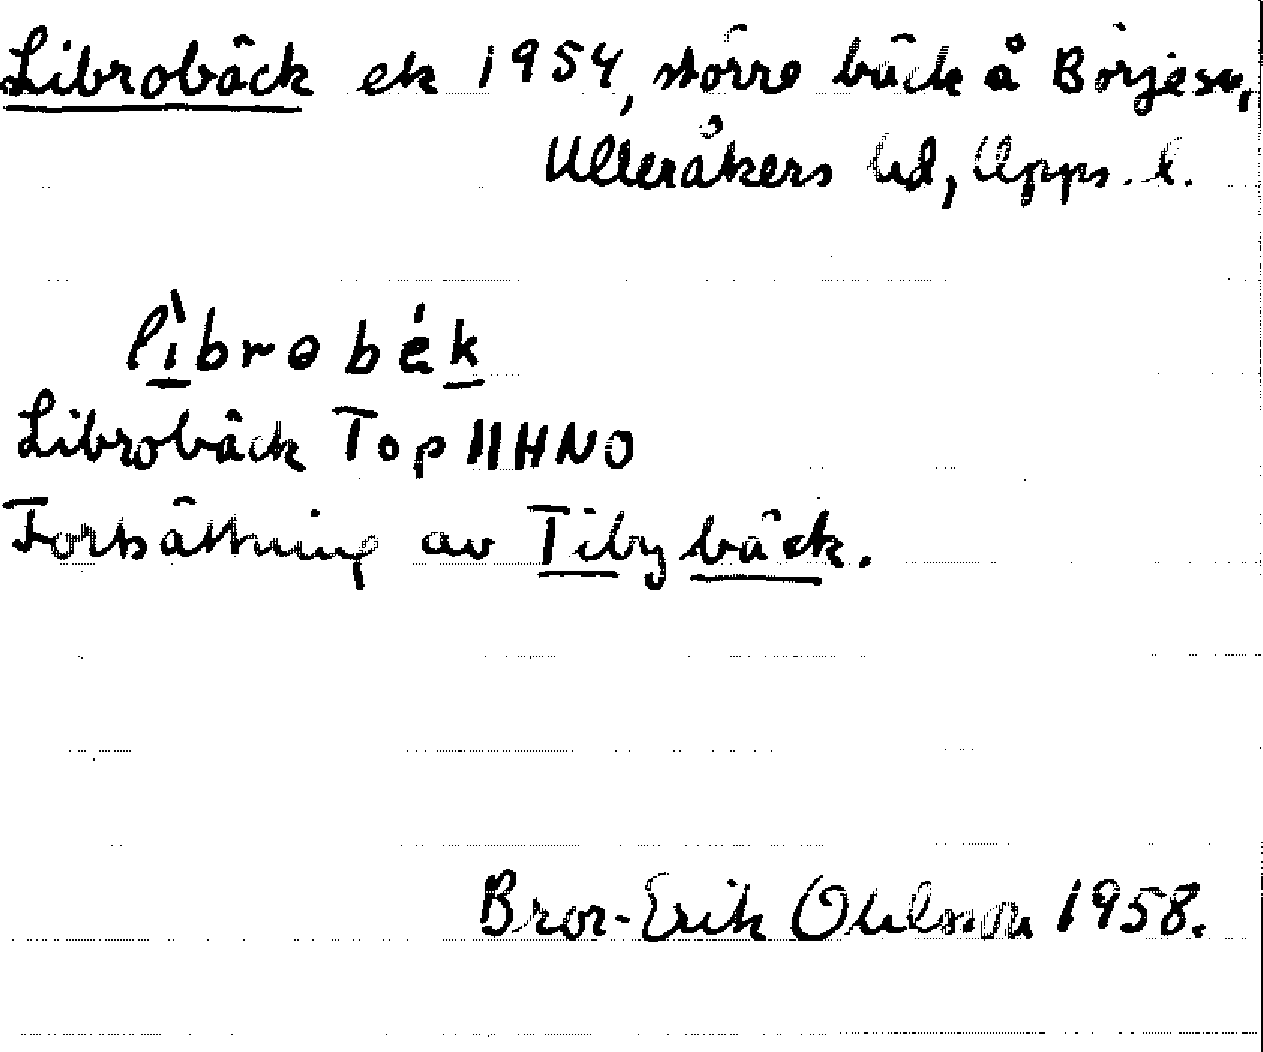 Librobäck ek 1954, större bäck å Börjesn,
Ulleråkers hd, Upps. l.
lìbrobék
Librobäck Top 11HNO
Fortsättning av Tibybäck.
Bror-Erik Ohlsson 1958.